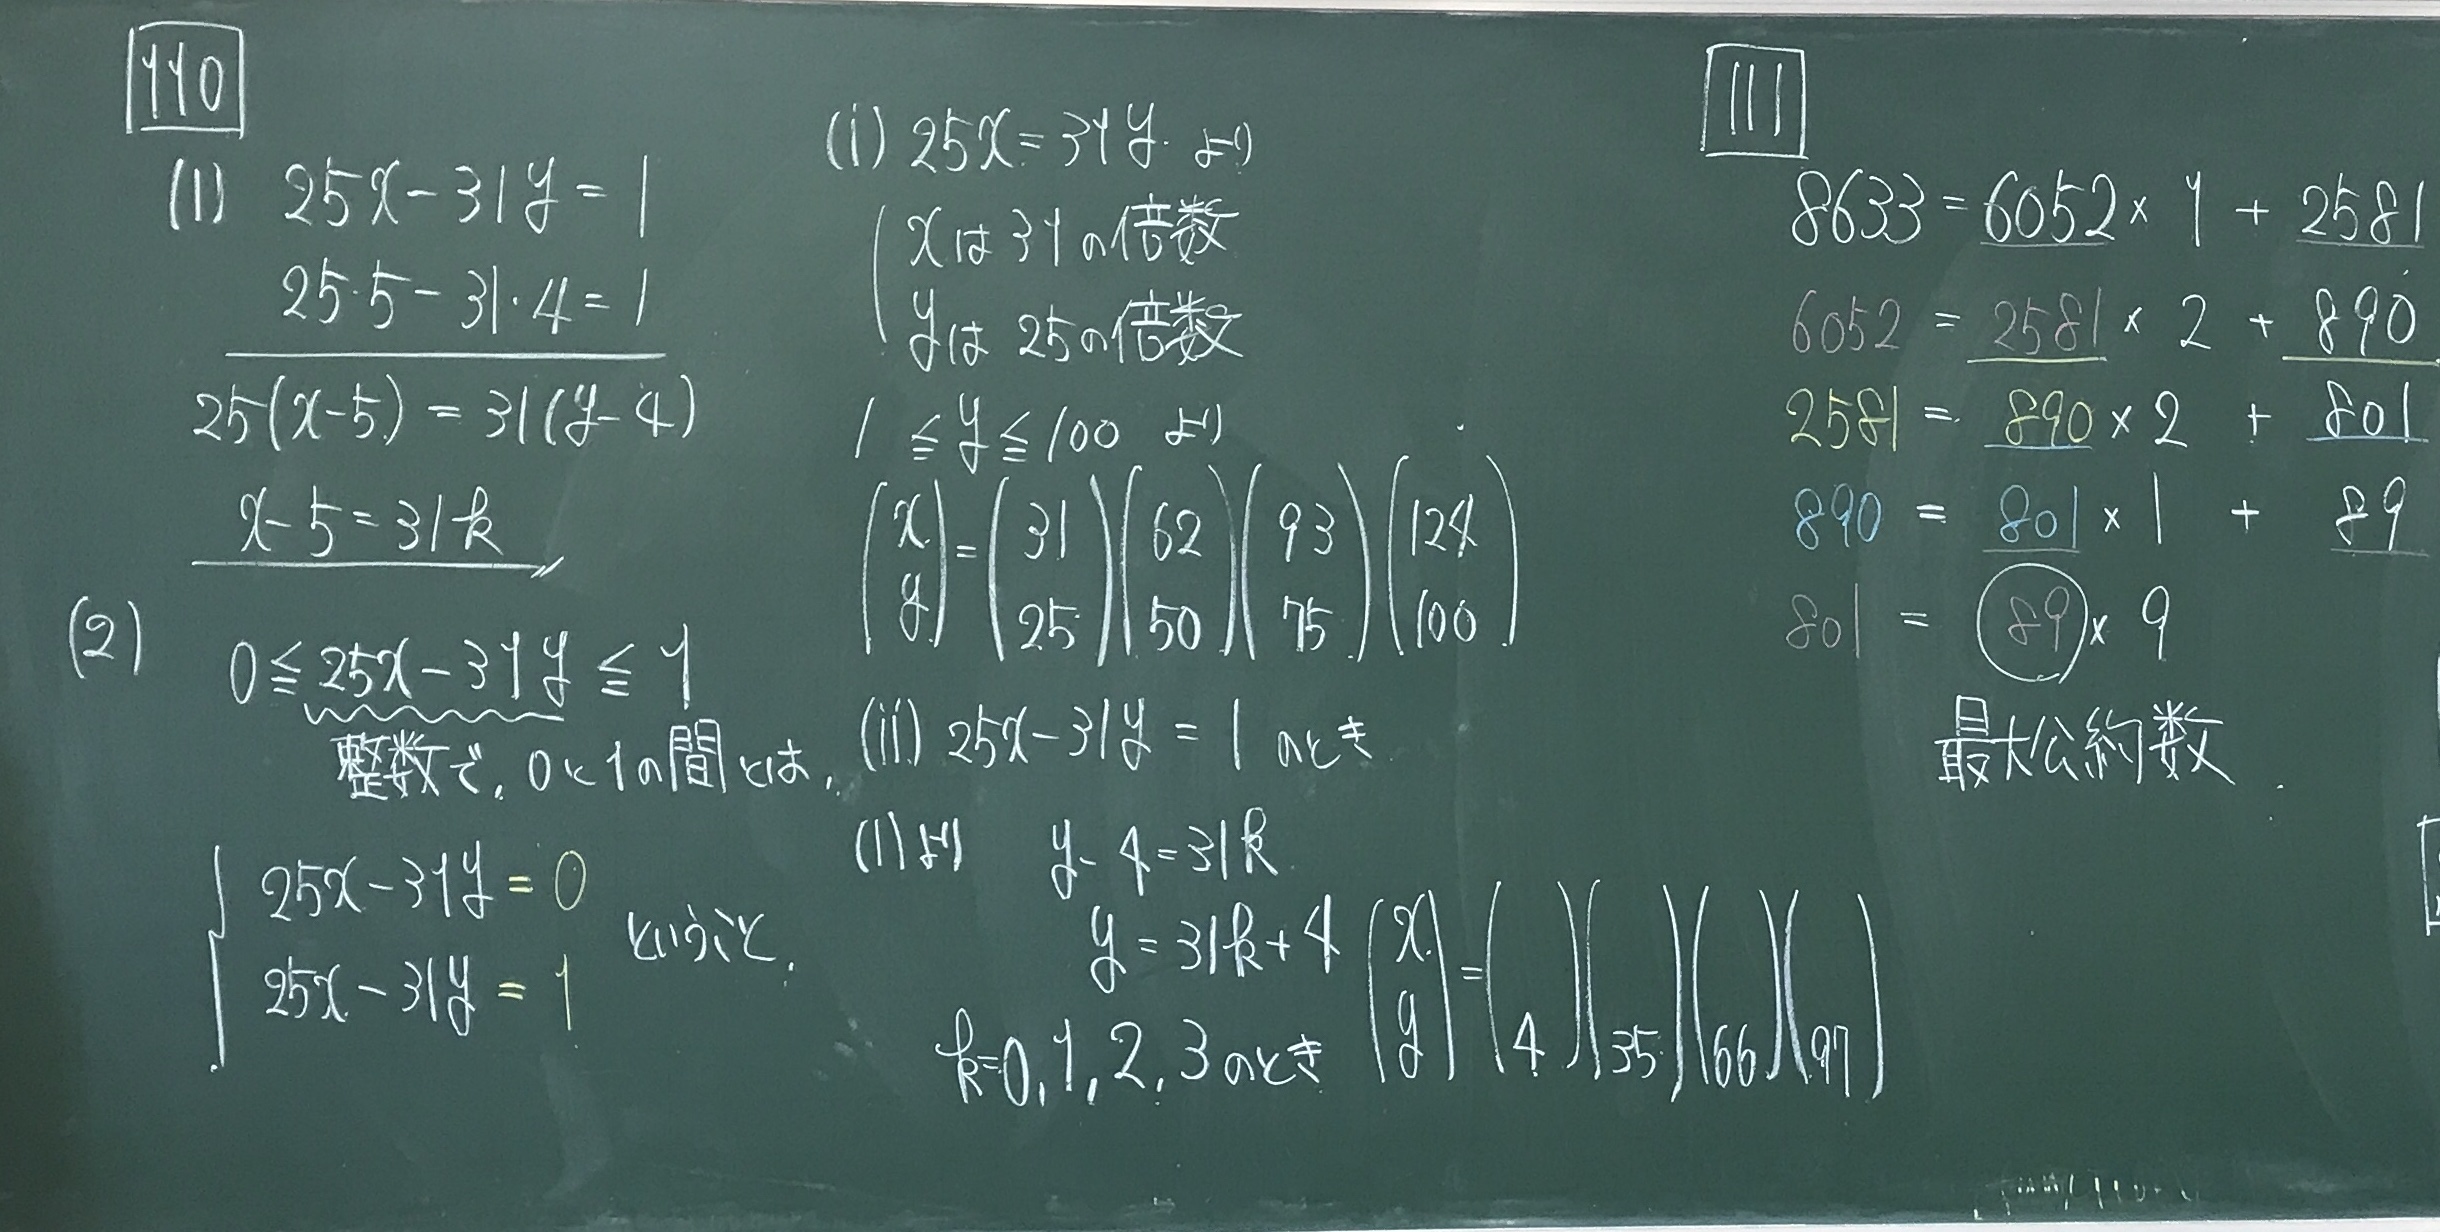 110
(1) 25x-31y=1
25·5-31·4=1
25(x-5)=31(y-4)
x-5=31k
(2)
0≦25x-31y≦1
整数で、0と1の間とは、
25x-31y=0
25x-31y=1
ということ.
(i) 25x=31y より
xは31の倍数
yは25の倍数
1≦y≦100 より
(x y)=(31 25)(62 50)(93 75)(124 100)
(ii) 25x-31y=1 のとき
(1)より y-4=31k
y=31k+4
k=0,1,2,3のとき (x y)=( 4)( 35)( 66)( 97)
111
8633=6052×1+2581
6052=2581×2+890
2581=890×2+801
890=801×1+89
801=89×9
最大公約数